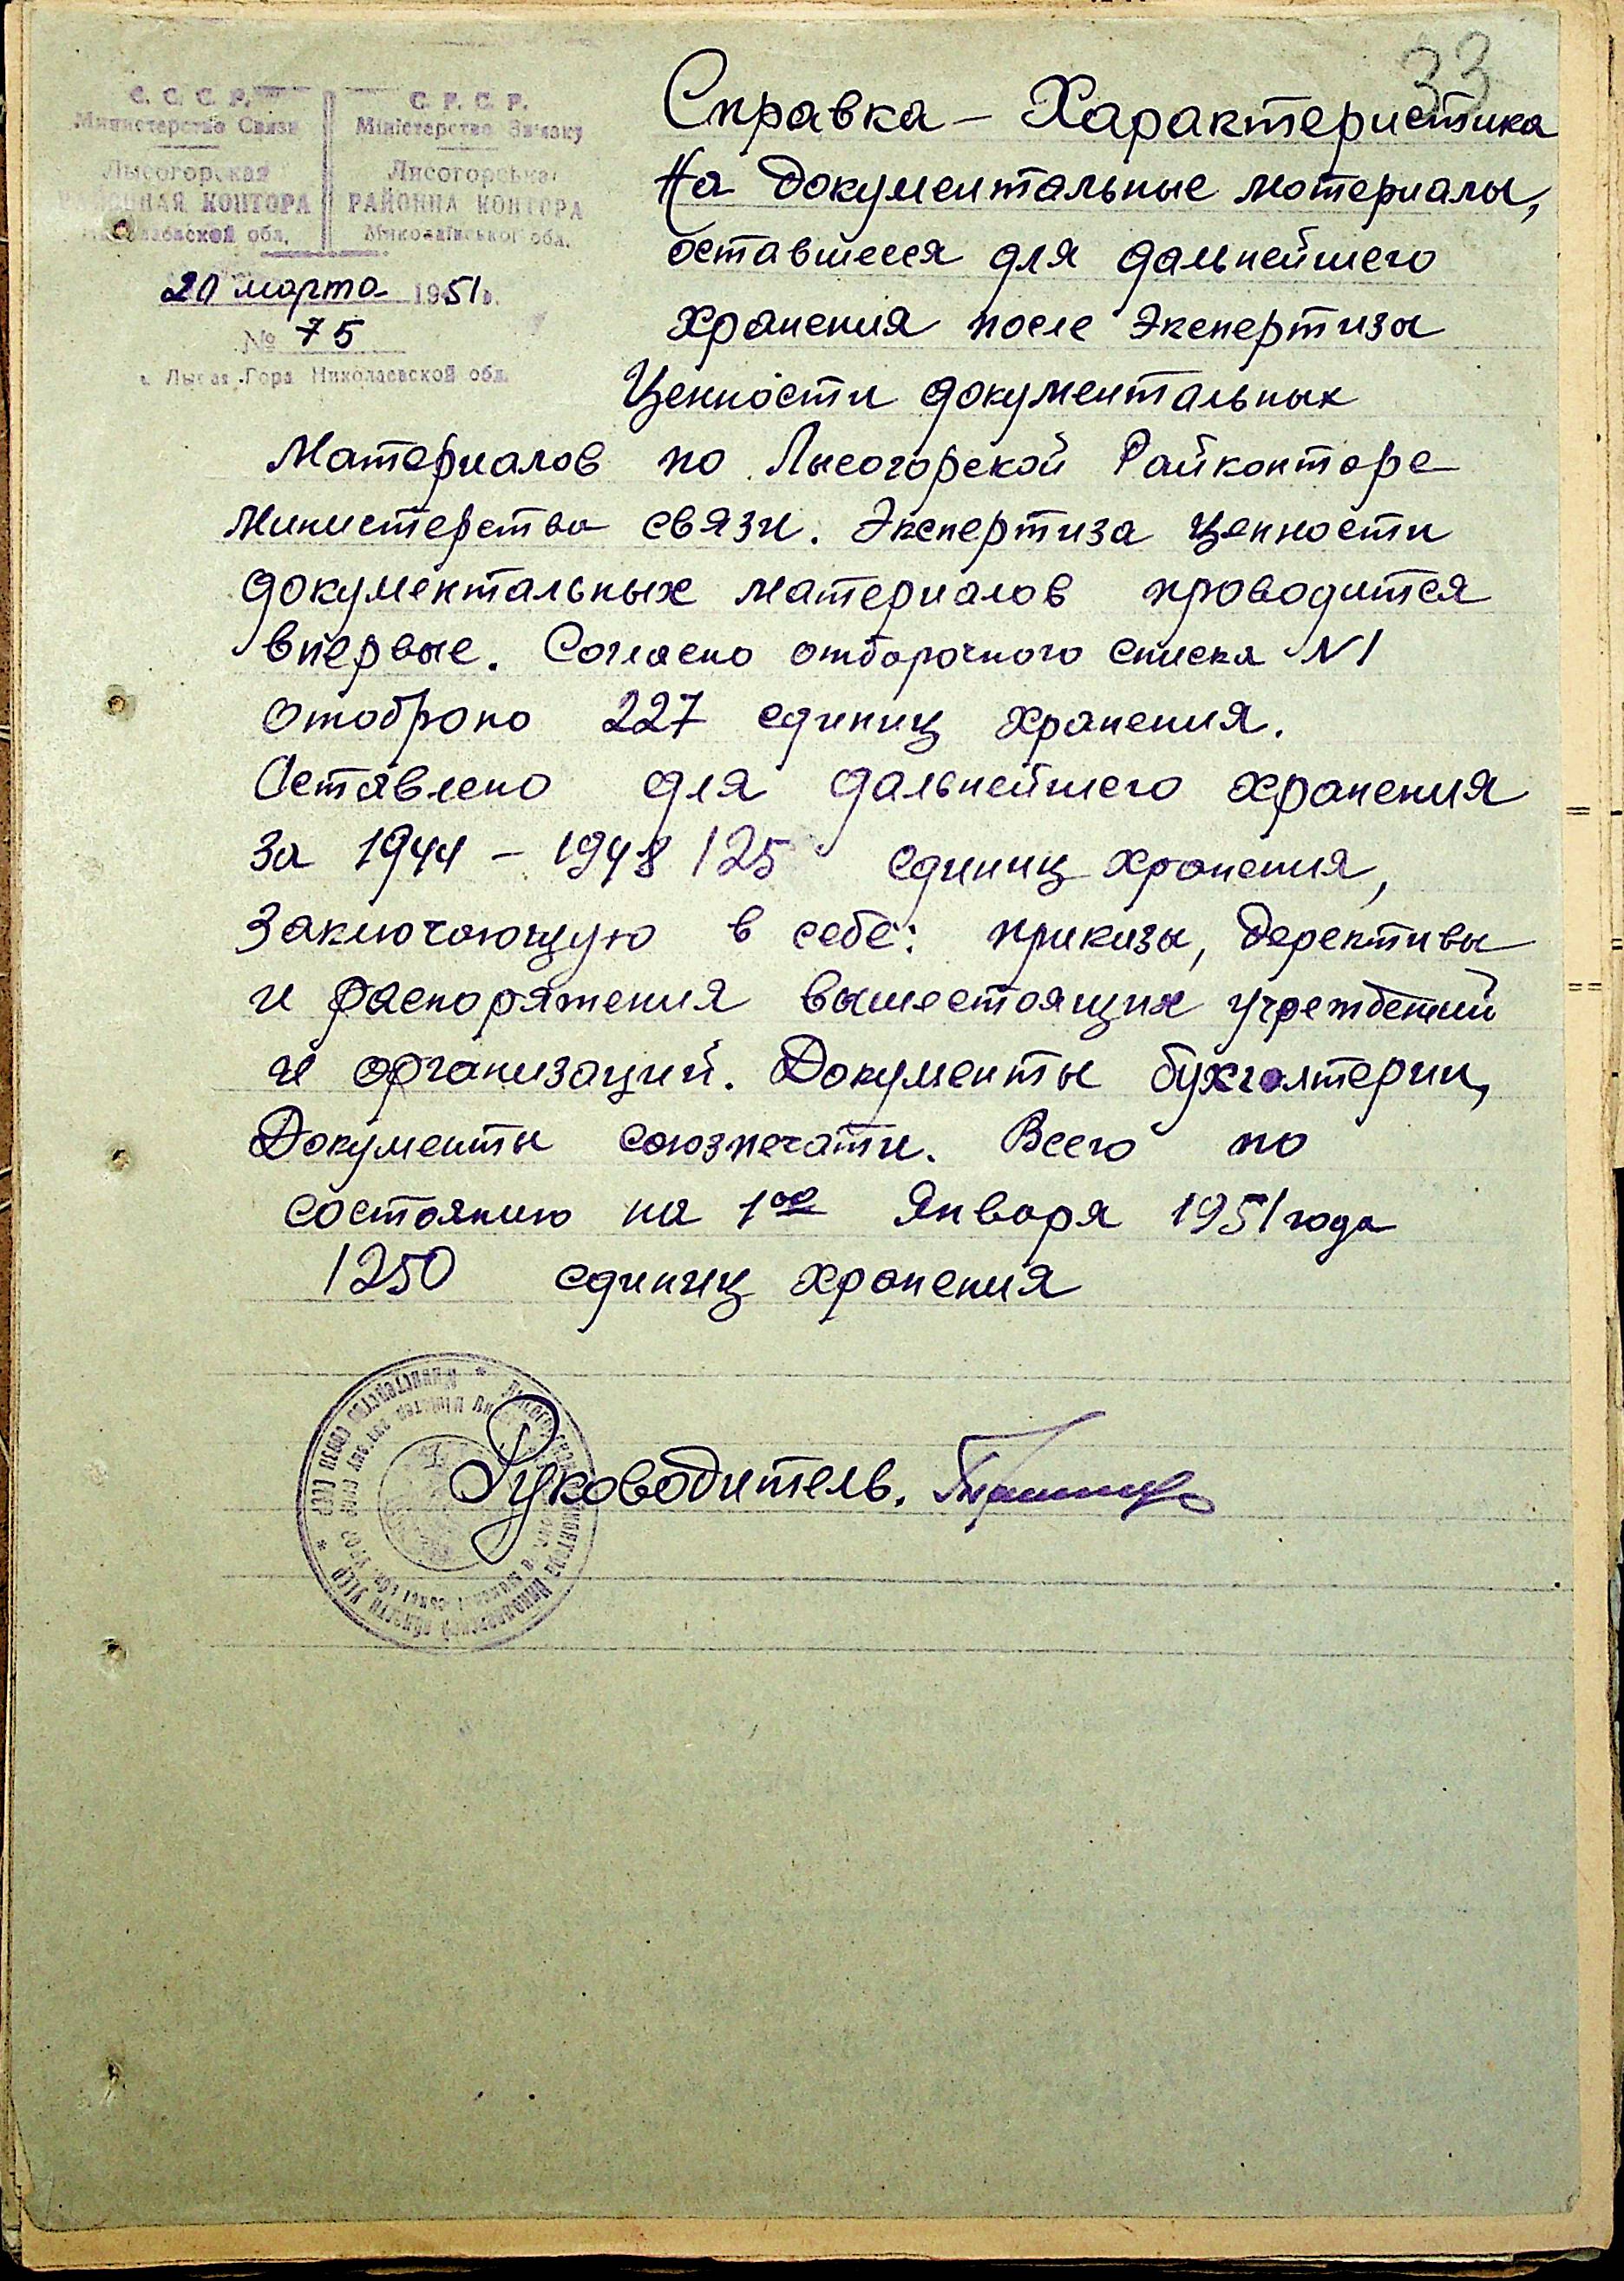 33
С. С. С. Р.
Министерство Связи
Лысогорская
РАЙОННАЯ КОНТОРА
Николаевской обл.
С. Р. С. Р.
Міністерство Зв'язку
Лисогорська
РАЙОННА КОНТОРА
Миколаївської обл.
20 марта 1951 г.
№ 75
с. Лысая-Гора Николаевской обл.
Справка – Характеристика
На документальные материалы,
оставшееся для дальнейшего
хранения после Экспертизы
Ценности документальных
Материалов по Лысогорской Райконторе
Министерства связи. Экспертиза Ценности
документальных материалов проводится
впервые. Согласно отборочного списка N 1
Отобрано 227 единиц хранения.
Оставлено для дальнейшего хранения
за 1944 – 1948 125 единиц хранения,
Заключающую в себе: приказы, Дерективы
и распоряжения вышестоящих учреждений
и организаций. Документы бухгалтерии,
Документы союзпечати. Всего по
состоянию на 1ое Января 1951 года
1250 единиц хранения
Руководитель.
* Министерство связи СССР *
контора Николаевской области УССР